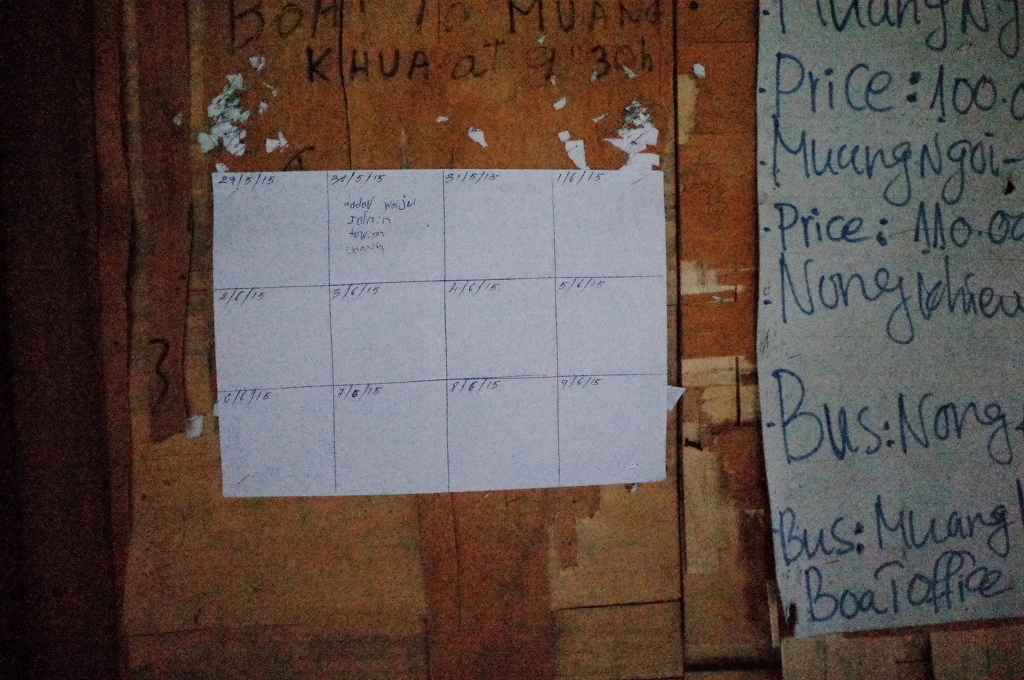 BOAT TO MUANG
KHUA at 9:30h
29/5/15 30/5/15 31/5/15 1/6/15
2/6/15 3/6/15 4/6/15 5/6/15
6/6/15 7/6/15 8/6/15 9/6/15
3
MuangNg
Price: 100.0
MuangNgoi-
Price: 110.00
Nongkhiew
Bus: Nong
Bus: Muang
BoaT office